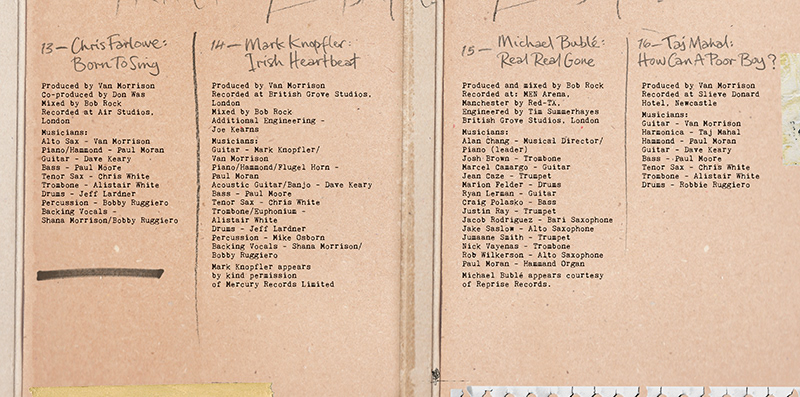 13 – Chris Farlowe:
Born To Sing
Produced by Van Morrison
Co-produced by Don Was
Mixed by Bob Rock
Recorded at Air Studios,
London
Musicians:
Alto Sax - Van Morrison
Piano/Hammond - Paul Moran
Guitar - Dave Keary
Bass - Paul Moore
Tenor Sax - Chris White
Trombone - Alistair White
Drums - Jeff Lardner
Percussion - Bobby Ruggiero
Backing Vocals -
Shana Morrison/Bobby Ruggiero
14 – Mark Knopfler:
Irish Heartbeat
Produced by Van Morrison
Recorded at British Grove Studios,
London
Mixed by Bob Rock
Additional Engineering -
Joe Kearns
Musicians:
Guitar - Mark Knopfler/
Van Morrison
Piano/Hammond/Flugel Horn -
Paul Moran
Acoustic Guitar/Banjo - Dave Keary
Bass - Paul Moore
Tenor Sax - Chris White
Trombone/Euphonium -
Alistair White
Drums - Jeff Lardner
Percussion - Mike Osborn
Backing Vocals - Shana Morrison/
Bobby Ruggiero
Mark Knopfler appears
by kind permission
of Mercury Records Limited
15 – Michael Bublé:
Real Real Gone
Produced and mixed by Bob Rock
Recorded at: MEN Arena,
Manchester by Red-TA.
Engineered by Tim Summerhayes
British Grove Studios, London
Musicians:
Alan Chang - Musical Director/
Piano (leader)
Josh Brown - Trombone
Marcel Camargo - Guitar
Jean Caze - Trumpet
Marion Felder - Drums
Ryan Lerman - Guitar
Craig Polasko - Bass
Justin Ray - Trumpet
Jacob Rodriguez - Bari Saxophone
Jake Saslow - Alto Saxophone
Jumaane Smith - Trumpet
Nick Vayenas - Trombone
Rob Wilkerson - Alto Saxophone
Paul Moran - Hammond Organ
Michael Bublé appears courtesy
of Reprise Records.
16 – Taj Mahal:
How Can A Poor Boy?
Produced by Van Morrison
Recorded at Slieve Donard
Hotel, Newcastle
Musicians:
Guitar - Van Morrison
Harmonica - Taj Mahal
Hammond - Paul Moran
Guitar - Dave Keary
Bass - Paul Moore
Tenor Sax - Chris White
Trombone - Alistair White
Drums - Robbie Ruggiero